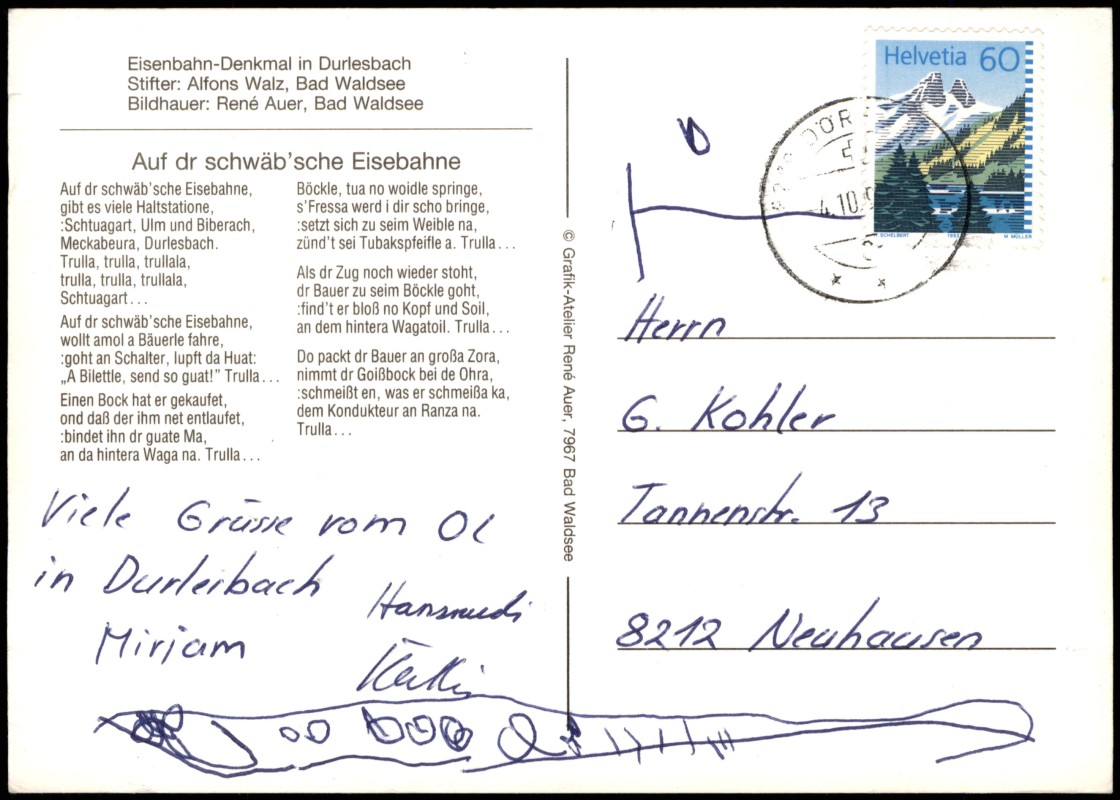 Eisenbahn-Denkmal in Durlesbach
Stifter: Alfons Walz, Bad Waldsee
Bildhauer: René Auer, Bad Waldsee
Auf dr schwäb'sche Eisebahne
Auf dr schwäb'sche Eisebahne,
gibt es viele Haltstatione,
:Schtuagart, Ulm und Biberach,
Meckabeura, Durlesbach.
Trulla, trulla, trullala,
trulla, trulla, trullala,
Schtuagart...
Auf dr schwäb'sche Eisebahne,
wollt amol a Bäuerle fahre,
:goht an Schalter, lupft da Huat:
„A Bilettle, send so guat!" Trulla...
Einen Bock hat er gekaufet,
ond daß der ihm net entlaufet,
:bindet ihn dr guate Ma,
an da hintera Waga na. Trulla...
Böckle, tua no woidle springe,
s'Fressa werd i dir scho bringe,
:setzt sich zu seim Weible na,
zünd't sei Tubakspfeifle a. Trulla...
Als dr Zug noch wieder stoht,
dr Bauer zu seim Böckle goht,
:find't er bloß no Kopf und Soil,
an dem hintera Wagatoil. Trulla...
Do packt dr Bauer an großa Zora,
nimmt dr Goißbock bei de Ohra,
:schmeißt en, was er schmeißa ka,
dem Kondukteur an Ranza na.
Trulla...
Viele Grüsse vom OL
in Durleibach
Hansruedi
Mirjam
© Grafik-Atelier René Auer, 7967 Bad Waldsee
Helvetia 60
H. SCHELBERT 1993 M. MÜLLER
DÖR
4.10.9
Herrn
G. Kohler
Tannenstr. 13
8212 Neuhausen